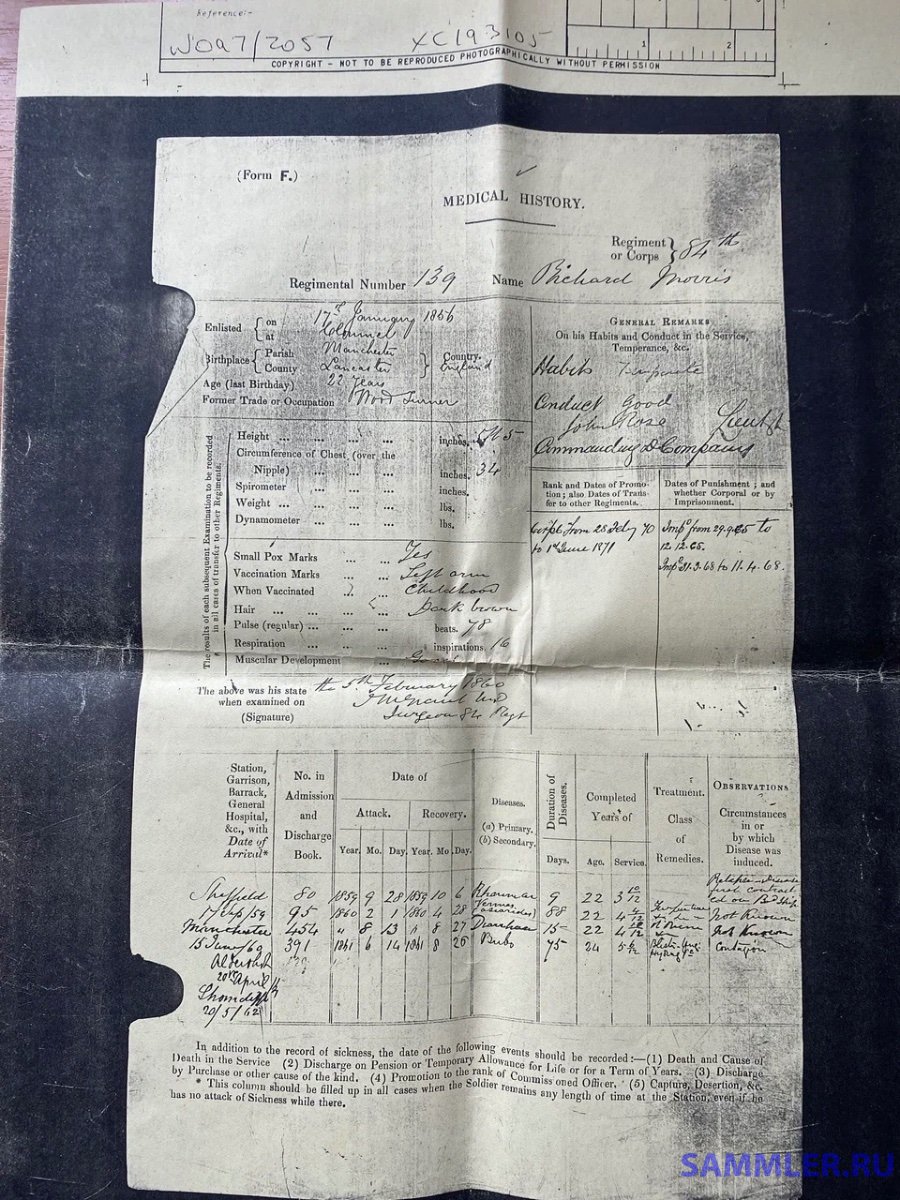 Reference:-
WO97/2057 XC193105
1 2
COPYRIGHT - NOT TO BE REPRODUCED PHOTOGRAPHICALLY WITHOUT PERMISSION
(Form F.)
MEDICAL HISTORY.
Regiment or Corps } 84th
Regimental Number 139 Name Richard Morris
Enlisted { on 17th January 1856
at Clonmel
Birthplace { Parish Manchester
County Lancaster } Country. England
Age (last Birthday) 22 Years
Former Trade or Occupation Wood Turner
GENERAL REMARKS
On his Habits and Conduct in the Service, Temperance, &c.
Habits Temperate
Conduct Good
John Rose Lieut
Commanding D Company
The results of each subsequent Examination to be recorded in all cases of transfer to other Regiments.
Height ... ... ... ... inches.
Circumference of Chest (over the
Nipple) ... ... ... inches. 34
Spirometer ... ... ... inches.
Weight ... ... ... ... lbs.
Dynamometer ... ... ... lbs.
Small Pox Marks ... ... Yes
Vaccination Marks ... ... Left arm
When Vaccinated ... Childhood
Hair ... ... ... Dark brown
Pulse (regular) ... ... ... beats. 78
Respiration ... ... ... inspirations. 16
Muscular Development ... Good
Rank and Dates of Promotion; also Dates of Transfer to other Regiments.
Corpl from 28 Feby 70
to 1st June 1871
Dates of Punishment; and whether Corporal or by Imprisonment.
Impd from 29.9.65 to
12.12.65.
Impd 21.3.68 to 11.4.68.
The above was his state when examined on the 5th February 1860
(Signature)
Surgeon 84 Regt
Station, Garrison, Barrack, General Hospital, &c., with Date of Arrival*
No. in Admission and Discharge Book.
Date of
Attack. Recovery.
Year. Mo. Day. Year. Mo. Day.
Diseases.
(a) Primary.
(b) Secondary.
Duration of Diseases.
Days.
Completed Years of
Age. Service.
Treatment.
Class of Remedies.
OBSERVATIONS
Circumstances in or by which Disease was induced.
Sheffield 80 1859 9 28 1859 10 6 9 22 3 10/12
95 1860 2 1 1860 4 28 88 22 4 Not Known
Manchester 454 " 8 13 " 8 27 Diarrhoea 15 22 4 Not Known
15 June/60 391 1861 6 14 1861 8 26 Bubo 75 24 5 Contagion
Aldershot
April
Shorncliffe
20/5/62
In addition to the record of sickness, the date of the following events should be recorded:—(1) Death and Cause of
Death in the Service (2) Discharge on Pension or Temporary Allowance for Life or for a Term of Years. (3) Discharge
by Purchase or other cause of the kind. (4) Promotion to the rank of Commissioned Officer. (5) Capture, Desertion, &c.
* This column should be filled up in all cases when the Soldier remains any length of time at the Station, even if he
has no attack of Sickness while there.
SAMMLER.RU